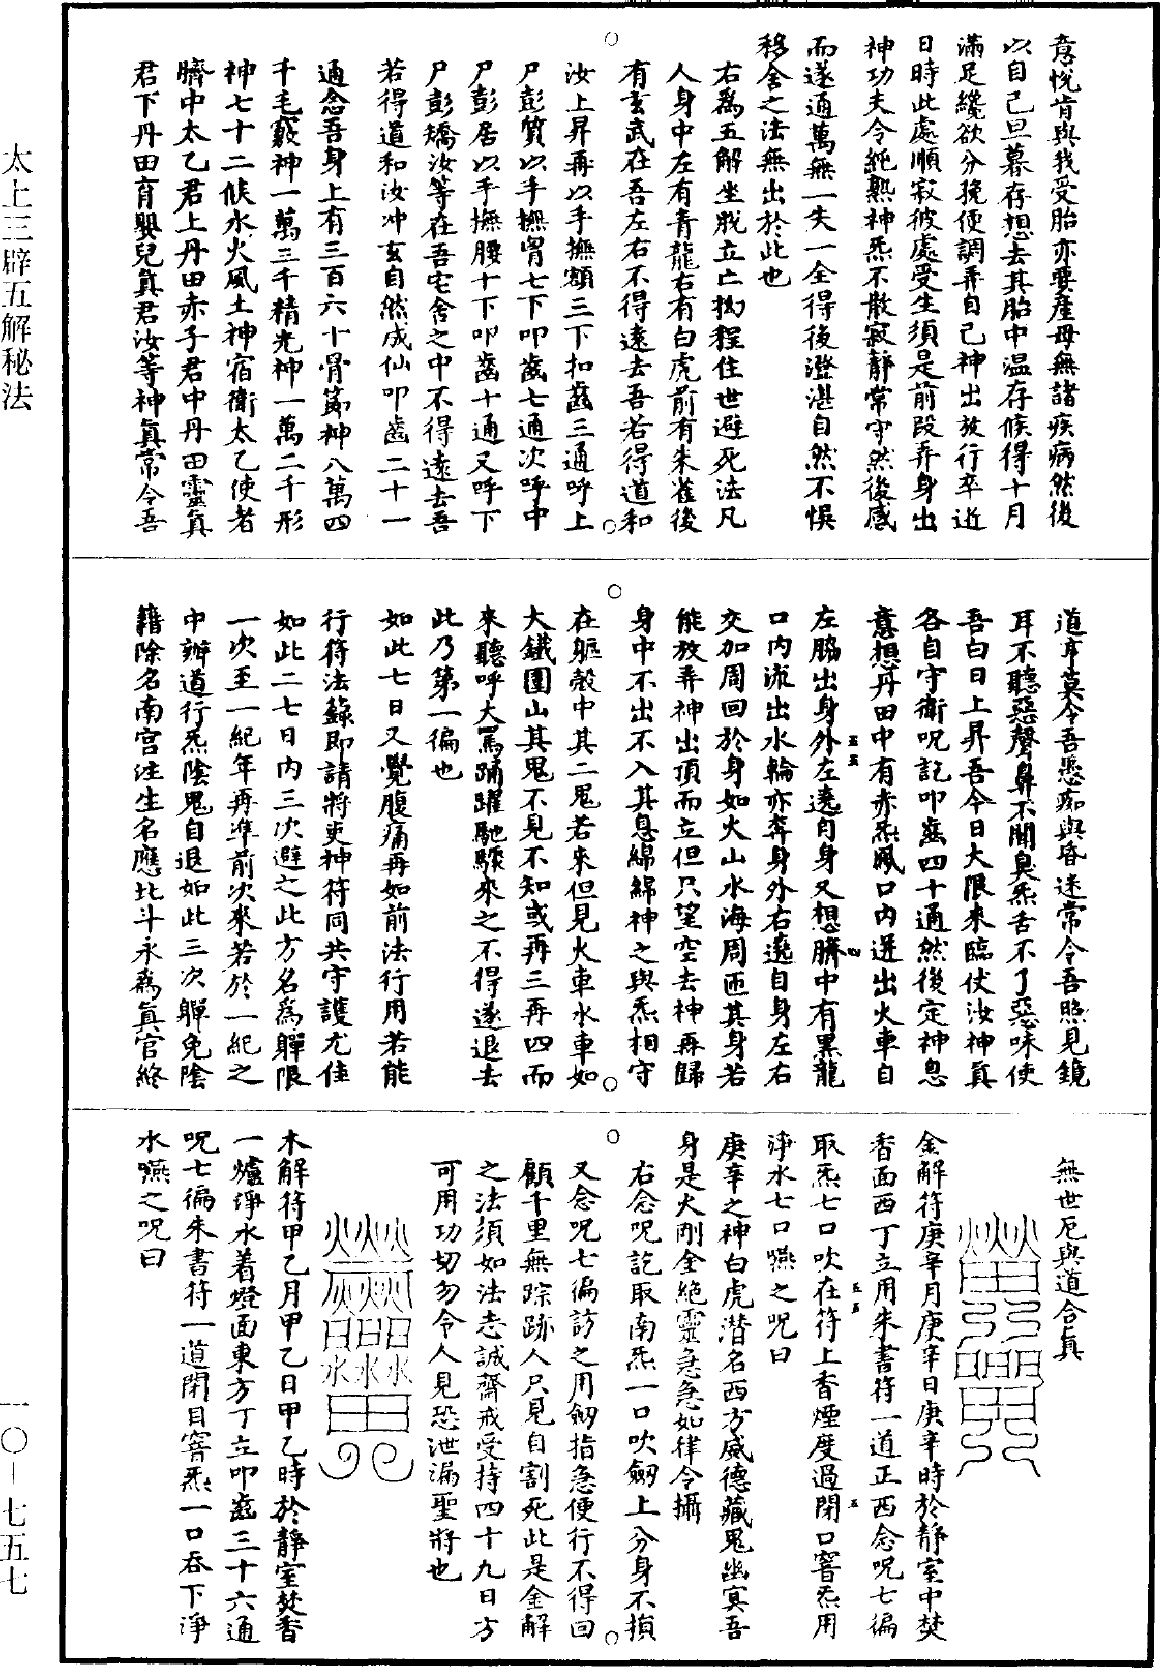 意悅肯與我受胎亦要產母無諸疾病然後
以自己旦暮存想去其胎中温存候得十月
滿足纔欲分挽使調弄自己神出放行卒近
日時此處順寂彼處受生須是前段弄身出
神功夫令純熟神炁不散寂靜常守然後感
而遂通萬無一失一全得後澄湛自然不悞
移舍之法無出於此也
右爲五解坐脫立亡拗程住世避死法凡
人身中左有青龍右有白虎前有朱雀後
有玄武在吾左右不得遠去吾若得道和
汝上昇再以手撫額三下扣齒三通呼上
尸彭質以手撫胷七下叩齒七通次呼中
尸彭居以手撫腰十下叩齒十通又呼下
尸彭矯汝等在吾宅舍之中不得遠去吾
若得道和汝冲玄自然成仙叩齒二十一
通念吾身上有三百六十骨節神八萬四
千毛竅神一萬三千精光神一萬二千形
神七十二候水火風土神宿衛太乙使者
臍中太乙君上丹田赤子君中丹田靈真
君下丹田育嬰兒真君汝等神真常令吾
道亨莫令吾愚痴與昏迷常令吾照見鏡
耳不聽惡聲鼻不聞臭炁舌不了惡味使
吾白日上昇吾今日大限來臨仗汝神真
各自守衛呪訖叩齒四十通然後定神息
意想丹田中有赤炁風口內迸出火車自
左脇出身外左遶自身又想臍中有黑龍
口內流出水輪亦奔身外右遶自身左右
交加周回於身如火山水海周匝其身若
能放弄神出頂而立但只望空去神再歸
身中不出不入其息綿綿神之與炁相守
在軀殼中其二鬼若來但見火車水車如
大鐵圍山其鬼不見不知或再三再四而
來聽呼大罵踊躍馳驟來之不得遂退去
此乃第一徧也
如此七日又覺腹痛再如前法行用若能
行符法籙即請將吏神符同共守護尤佳
如此二七日內三次避之此方名爲軃限
一次至一紀年再準前次來若於一紀之
中辦道行炁陰鬼自退如此三次軃免陰
籍除名南宫注生名應北斗永爲真官終
無世厄與道合真
金解符庚辛月庚辛日庚辛時於靜室中焚
香面西丁立用朱書符一道正西念呪七徧
取炁七口吹在符上香煙度過閉口窨炁用
淨水七口嚥之呪曰
庚辛之神白虎潜名西方威德藏鬼幽冥吾
身是大剛金絶靈急急如律令攝
右念呪訖取南炁一口吹劒上分身不損
又念呪七徧訪之用劒指急便行不得回
顧千里無踪跡人只見自割死此是金解
之法須如法志誠齋戒受持四十九日方
可用功切勿令人見恐泄漏聖將也
木解符甲乙月甲乙日甲乙時於靜室焚香
一爐淨水着燈面東方丁立叩齒三十六通
呪七徧朱書符一道閉目窨炁一口吞下淨
水嚥之呪曰
太上三辟五解秘法
一〇—七五七